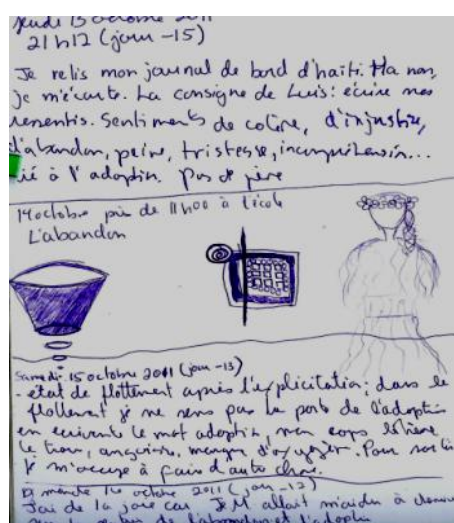 Jeudi 13 octobre 2011
21h12 (jour -15)
Je relis mon journal de bord d'haïti. Ma non,
je m'écarte. La consigne de Luis: écrire mes
ressentis. Sentiments de colère, d'injustice,
d'abandon, peine, tristesse, incompréhension...
lié à l'adoption. Pas de père
14 octobre près de 11h00 à l'école
L'abandon
Samedi 15 octobre 2011 (jour -13)
- état de flottement après l'explicitation; dans le
flottement je ne sens pas le poids de l'adoption
en écrivant le mot adoption, mon corps
le trou, angoisse, manque d'oxygène. Pour sortir
je m'occupe à faire d'autre chose.
Dimanche 16 octobre 2011 (jour -12)
J'ai de la joie car J.M. allait m'aider à
l'abandon et l'adoption